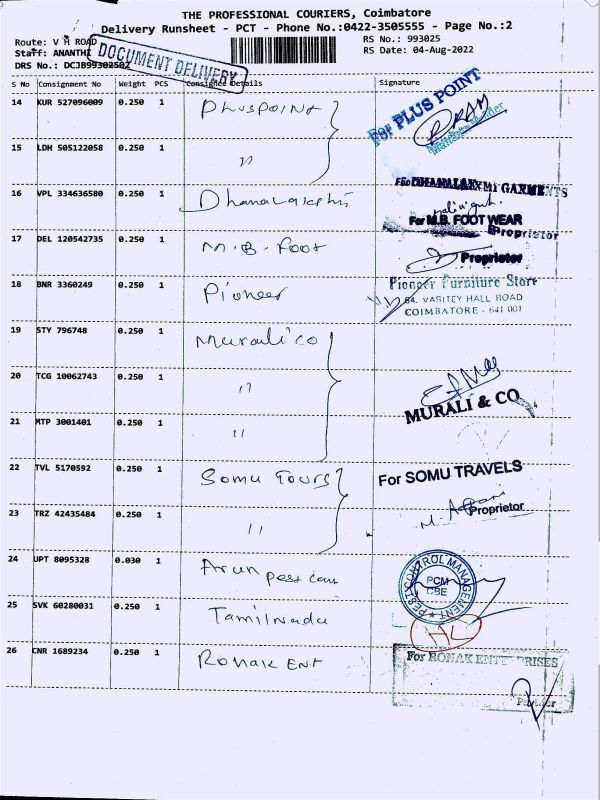 THE PROFESSIONAL COURIERS, Coimbatore
Delivery Runsheet - PCT - Phone No.:0422-3505555 - Page No.:2
Route: V H ROAD
RS No.: 993025
Staff: ANANTHI
RS Date: 04-Aug-2022
DRS No.: DCJB9930250Z
DOCUMENT DELIVERY
S No Consignment No Weight PCS Consignee Details Signature
14 KUR 527096009 0.250 1 Pluspoint For PLUS POINT
15 LDH 505122058 0.250 1 "
16 VPL 334636580 0.250 1 Dhanalakshmi For DHANALAXMI GARMENTS
For M.B. FOOT WEAR
Proprietor
17 DEL 120542735 0.250 1 M.B. Foot Proprietor
18 BNR 3360249 0.250 1 Pioneer Pioneer Furniture Store
64, VARITEY HALL ROAD
COIMBATORE - 641 001
19 STY 796748 0.250 1 Murali co
20 TCG 10062743 0.250 1 "
MURALI & CO
21 MTP 3001401 0.250 1 "
22 TVL 5170592 0.250 1 Somu Tours For SOMU TRAVELS
23 TRZ 42435484 0.250 1 " Proprietor
24 UPT 8095328 0.030 1 Arun pest con PEST CONTROL MANAGEMENT
PCM
CBE
25 SVK 60280031 0.250 1 Tamilnadu
26 CNR 1689234 0.250 1 Ronak Ent For RONAK ENTERPRISES
Partner